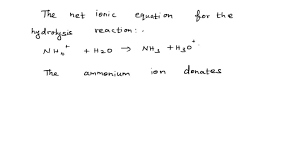 The net ionic equation for the
hydrolysis reaction:
NH₄⁺ + H2O → NH₃ + H₃O⁺
The ammonium ion donates